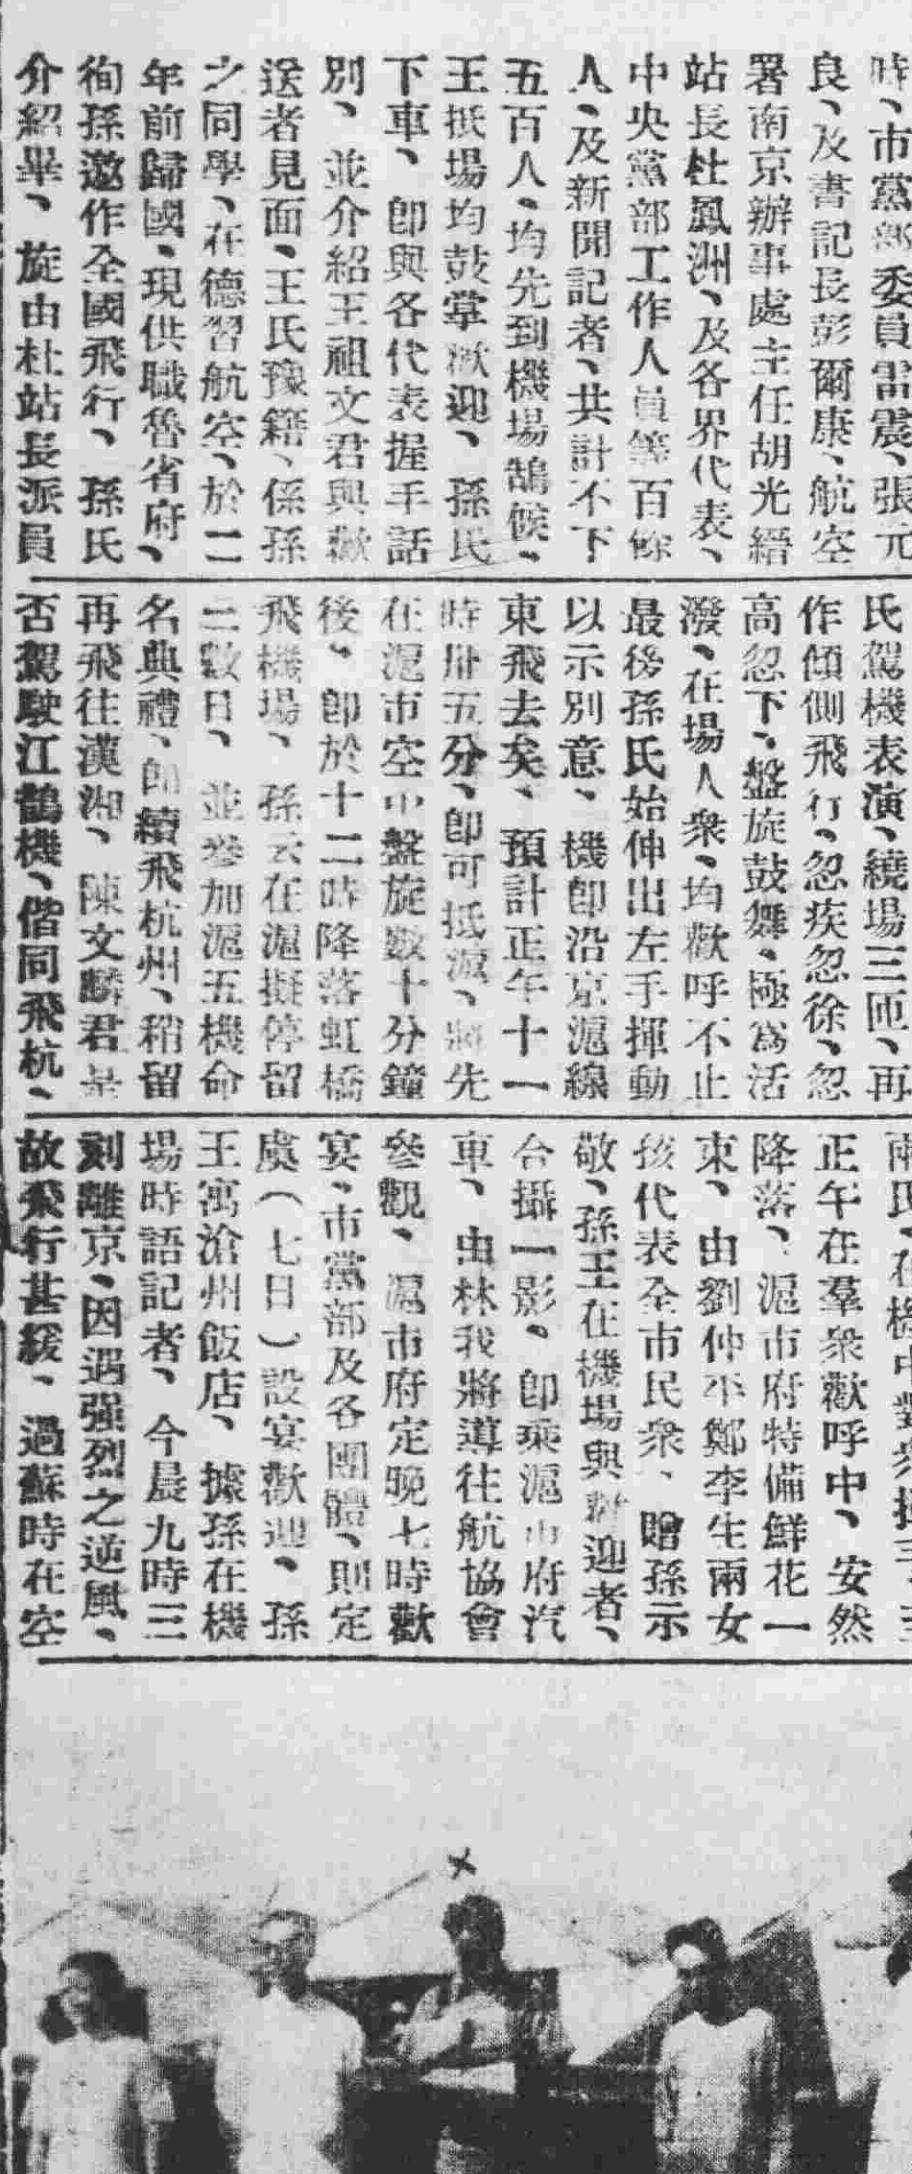 時、市黨部委員雷震、張元
良、及書記長彭爾康、航空
署南京辦事處主任胡光縉
站長杜鳳洲、及各界代表、
中央黨部工作人員等百餘
人、及新聞記者、共計不下
五百人、均先到機場鵠候、
王抵場均鼓掌歡迎、孫氏
下車、卽與各代表握手話
別、並介紹王祖文君與歡
送者見面、王氏豫籍、係孫
之同學、在德習航空、於二
年前歸國、現供職魯省府、
徇孫邀作全國飛行、孫氏
介紹畢、旋由杜站長派員
氏駕機表演、繞場三匝、再
作傾側飛行、忽疾忽徐、忽
高忽下、盤旋鼓舞、極爲活
潑、在場人衆、均歡呼不止
最後孫氏始伸出左手揮動
以示別意、機卽沿京滬線
東飛去矣、預計正午十一
時卅五分、卽可抵滬、將先
在滬市空中盤旋數十分鐘
後、卽於十二時降落虹橋
飛機場、孫云在滬擬停留
二數日、並參加滬五機命
名典禮、卽續飛杭州、稍留
再飛往漢湘、陳文麟君是
否駕駛江鶴機、偕同飛杭、
兩氏、在機中對衆揮手、
正午在羣衆歡呼中、安然
降落、滬市府特備鮮花一
束、由劉仲平鄭李生兩女
孩代表全市民衆、贈孫示
敬、孫王在機場與歡迎者、
合攝一影、卽乘滬市府汽
車、由林我將導往航協會
參觀、滬市府定晚七時歡
宴、市黨部及各團體、則定
虞（七日）設宴歡迎、孫
王寓滄州飯店、據孫在機
場時語記者、今晨九時三
刻離京、因遇强烈之逆風、
故飛行甚緩、過蘇時在空